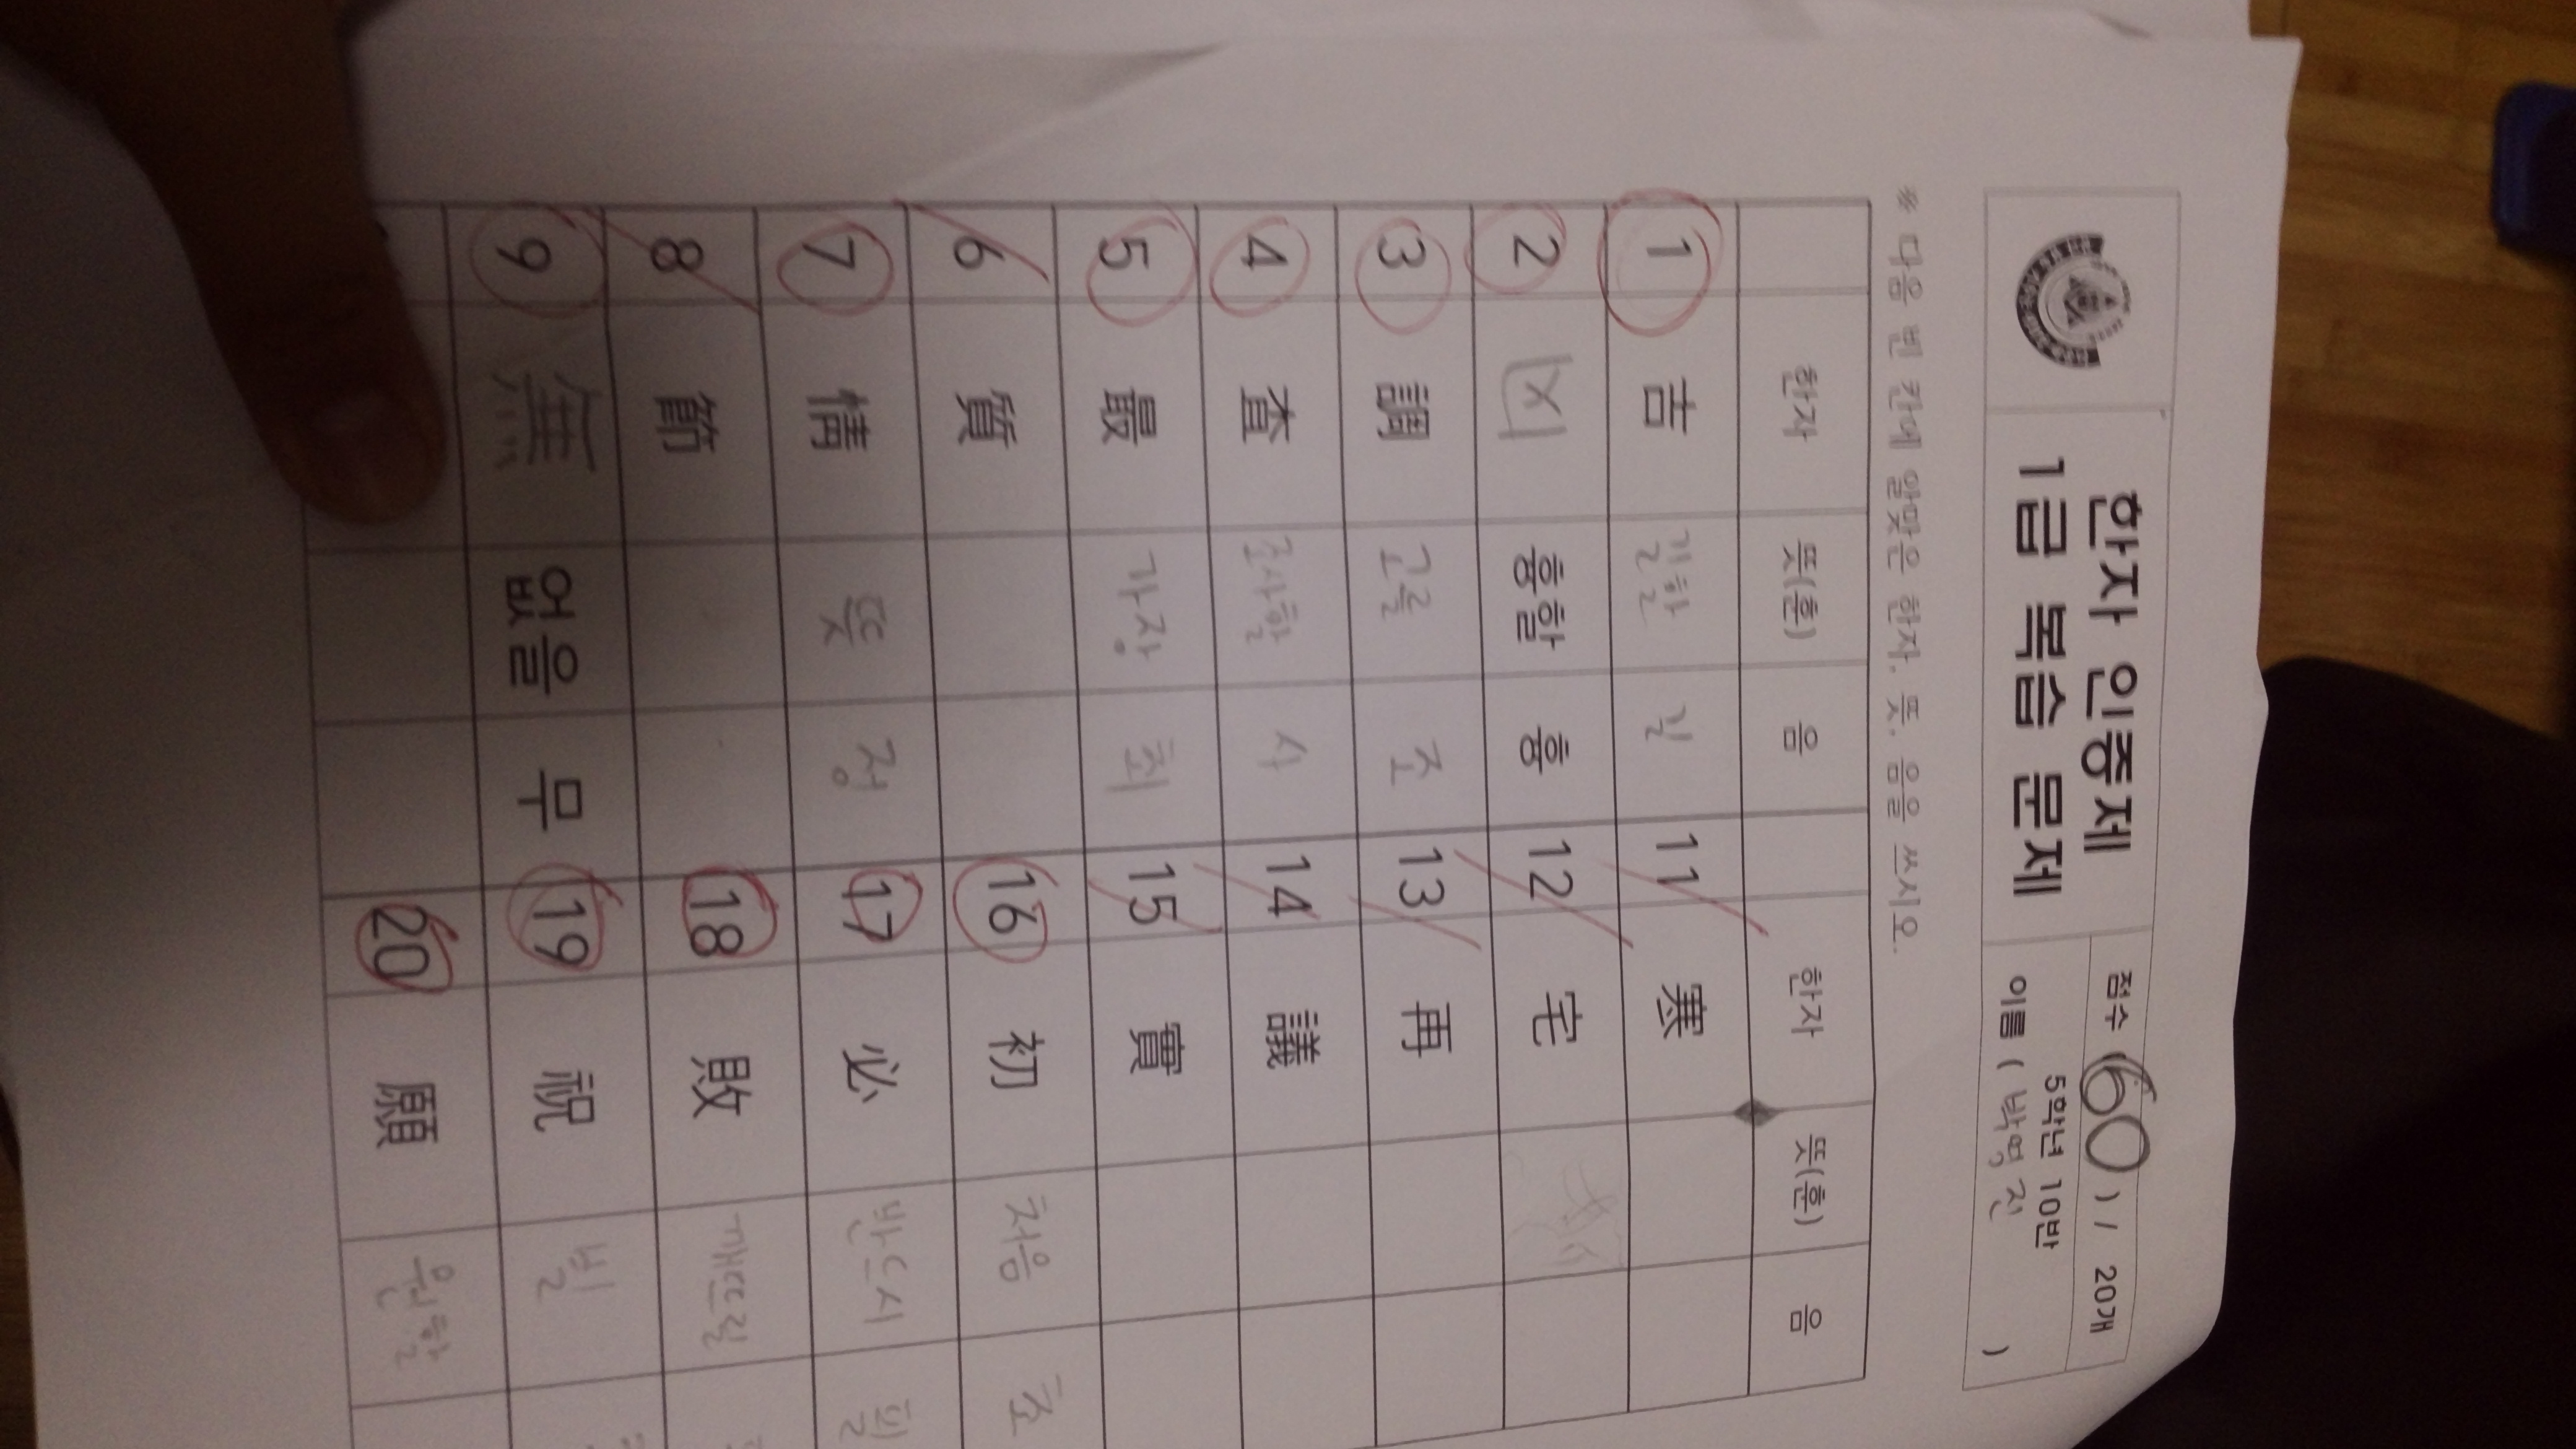 한자 인증제
1급 복습 문제
점수 (60) / 20개
5학년 10반
이름 ( 박영진 )
※ 다음 빈 칸에 알맞은 한자, 뜻, 음을 쓰시오.
한자 뜻(훈) 음 한자 뜻(훈) 음
1 吉 길할 길 11 寒
2 凶 흉할 흉 12 宅
3 調 고를 조 13 再
4 査 조사할 사 14 議
5 最 가장 최 15 實
6 質 16 初 처음 초
7 情 뜻 정 17 必 반드시 필
8 節 18 敗 깨뜨릴
9 無 없을 무 19 祝 빌
20 願 원할